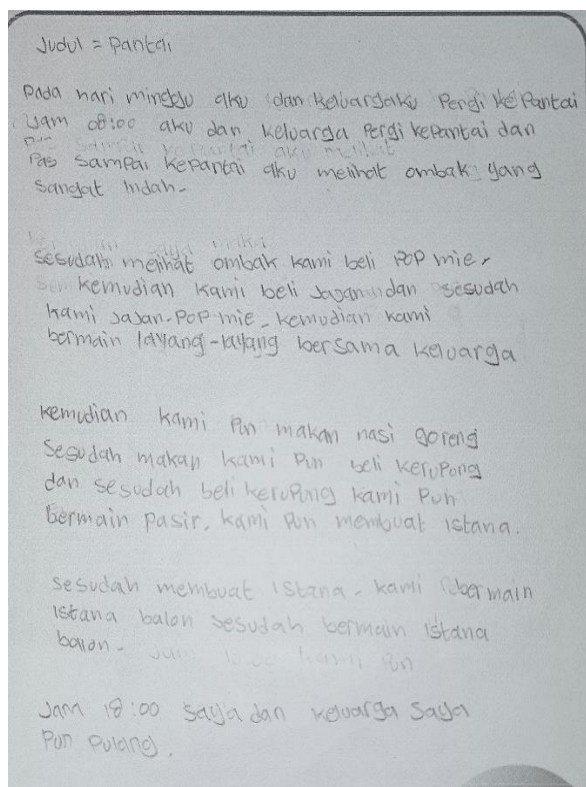 Judul = Pantai
Pada hari minggu aku dan keluargaku Pergi ke Pantai
Jam 08:00 aku dan keluarga Pergi kepantai dan
Pas sampai kepantai aku melihat ombak yang
sangat indah-
sesudah melihat ombak kami beli POP mie,
kemudian kami beli Jajan dan sesudah
kami Jajan-POP-mie-kemudian kami
bermain layang-layang bersama keluarga
kemudian kami Pun makan nasi goreng
Sesudah makan kami Pun beli kerupong
dan sesudah beli kerupong kami Pun
bermain Pasir. kami Pun membuat istana.
sesudah membuat istana. kami bermain
istana balon sesudah bermain istana
balon-
Jam 18:00 saya dan keluarga saya
Pun Pulang.